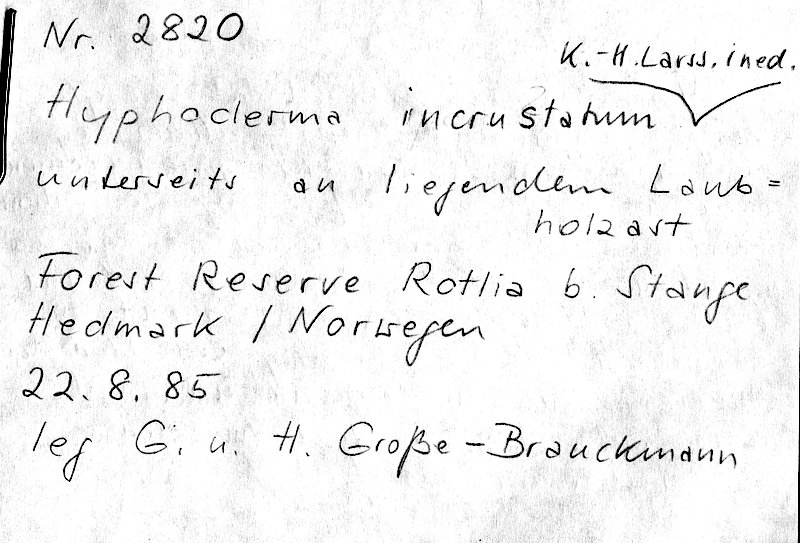 Nr. 2820
K.-H. Larss. ined.
Hyphoderma incrustatum
unterseits an liegendem Laub=
holzast
Forest Reserve Rotlia b. Stange
Hedmark / Norwegen
22. 8. 85
leg G. u. H. Große-Brauckmann